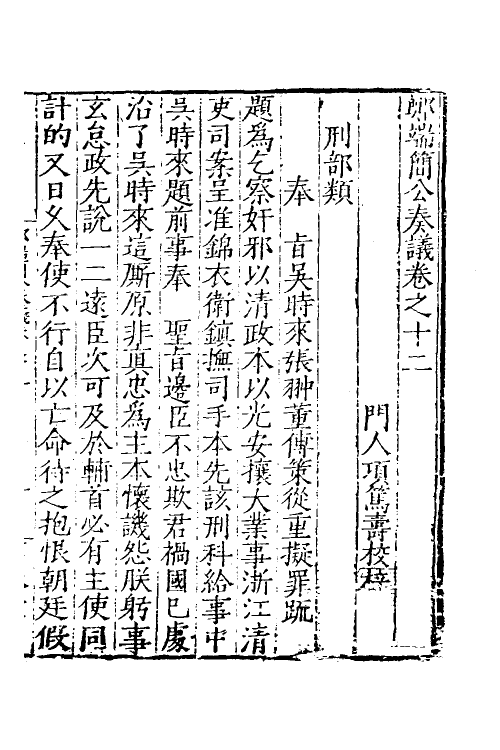 鄭端簡公奏議卷之十二
門人項篤壽校梓
刑部類
奉　旨吳時來張翀董傳策從重擬罪䟽
題為乞察奸邪以清政本以光安攘大業事浙江清
吏司案呈准錦衣衛鎮撫司手本先該刑科給事中
吳時來題前事奉　聖旨邊臣不忠欺君禍國已處
治了吳時來這厮原非真忠為主本懷譏怨朕躬事
玄怠政先說一二遠臣次可及於輔首必有主使同
計的又日久奉使不行自以亡命待之抱恨朝廷假